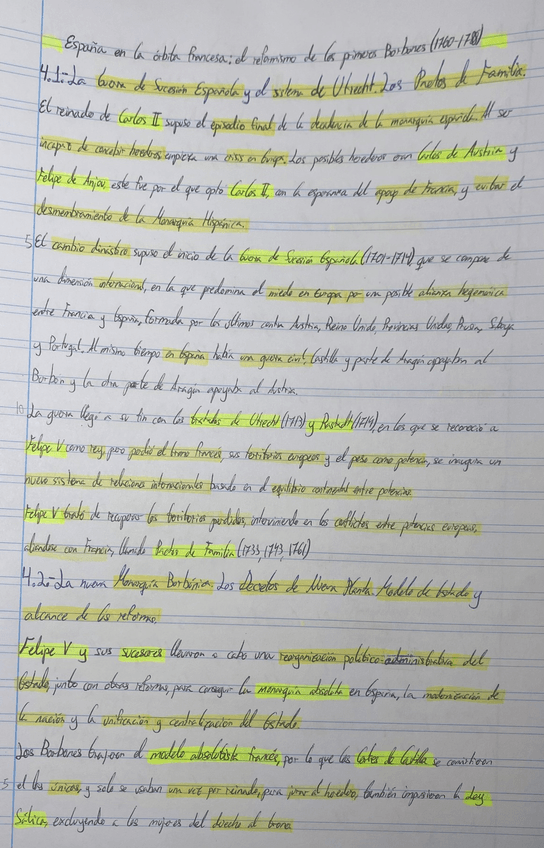 España en la órbita francesa: el reformismo de los primeros Borbones (1700-1788)
4.1.-La Guerra de Sucesión Española y el sistema de Utrecht. Los Pactos de Familia.
El reinado de Carlos II supuso el episodio final de la decadencia de la monarquía española. Al ser
incapaz de concebir herederos empieza una crisis en Europa. Los posibles herederos eran Carlos de Austria y
Felipe de Anjou, este fue por el que optó Carlos II, con la esperanza del apoyo de Francia, y evitar el
desmembramiento de la Monarquía Hispánica.
5 El cambio dinástico supuso el inicio de la Guerra de Sucesión Española (1701-1714) que se compone de
una dimensión internacional, en la que predomina el miedo en Europa por una posible alianza hegemónica
entre Francia y España, formada por los últimos contra Austria, Reino Unido, Provincias Unidas, Prusia, Saboya
y Portugal. Al mismo tiempo en España había una guerra civil, Castilla y parte de Aragón apoyaban al
Borbón y la otra parte de Aragón apoyaba al Austria.
10 La guerra llegó a su fin con los tratados de Utrecht (1713) y Rastadt (1714), en los que se reconoció a
Felipe V como rey, pero perdió el trono francés, sus territorios europeos y el peso como potencia, se inaugura un
nuevo sistema de relaciones internacionales basado en el equilibrio continental entre potencias.
Felipe V trató de recuperar los territorios perdidos, interviniendo en los conflictos entre potencias europeas,
aliandose con Francia, llamado Pactos de Familia (1733, 1743, 1761)
4.2.-La nueva Monarquía Borbónica. Los Decretos de Nueva Planta. Modelo de Estado y
alcance de las reformas.
Felipe V y sus sucesores llevaron a cabo una reorganización político-administrativa del
Estado, junto con otras reformas, para conseguir la monarquía absoluta en España, la modernización de
la nación y la unificación y centralización del Estado.
Los Borbones trajeron el modelo absolutista francés, por lo que las Cortes de Castilla se convirtieron
5 el las únicas, y solo se usaban una vez por reinado, para jurar al heredero, también impusieron la Ley
Sálica, excluyendo a las mujeres del derecho al trono.